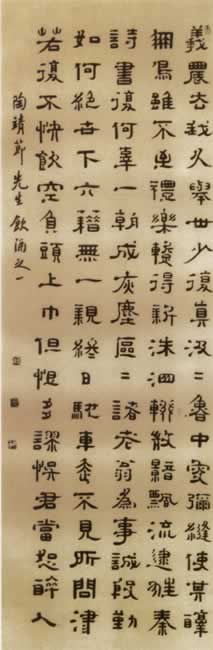 羲農去我久舉世少復真汲二魯中叟彌縫使其醇
鳳鳥雖不至禮樂暫得新洙泗輟微響飄流逮狂秦
詩書復何辠一朝成灰塵區二諸老翁為事誠殷勤
如何絕世下六籍無一親終日馳車走不見所問津
若復不快飲空負頭上巾但恨多謬誤君當恕醉人
陶靖節先生飲酒之一